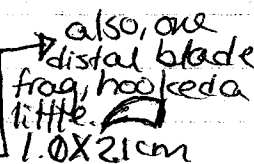 also, one
distal blade
frag, hooked a
little.
1.0X21cm